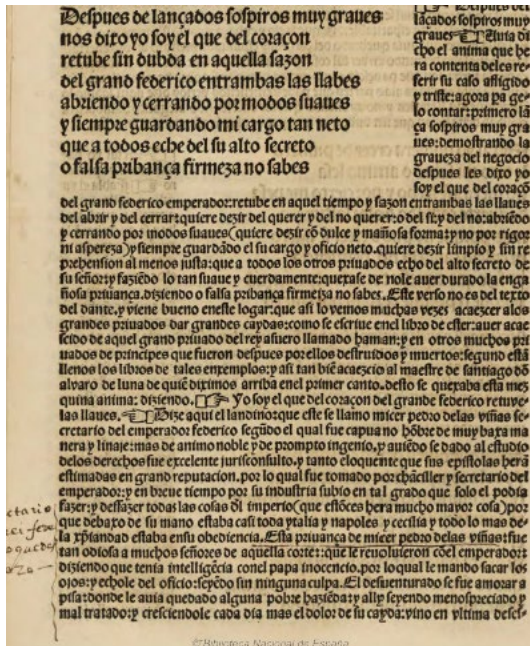 Despues de lançados sospiros muy graues
nos dixo yo soy el que del coraçon
retube sin dubda en aquella sazon
del grand federico entrambas las llabes
abriendo y cerrando por modos suaues
y siempre guardando mi cargo tan neto
que a todos eche del su alto secreto
o falsa pribança firmeza no sabes
☞ Despues de
lãçados sospiros muy
graues ☞ Auia di
cho el anima que he
ra contenta deles re
ferir su caso afligido
y triste: agora pa ge
lo contar: primero lã
ça sospiros muy gra
ues: demostrando la
graueza del negocio
despues les dixo yo
soy el que del coraçõ
del grand federico emperador: retube en aquel tiempo y sazon entrambas las llaues
del abrir y del cerrar: quiere dezir del querer y del no querer: o del si: y del no: abriẽdo
y cerrando por modos suaues (quiere dezir cõ dulce y mañosa forma: y no por rigor
ni aspereza) y siempre guardãdo el su cargo y oficio neto. quiere dezir limpio y sin re
prehension al menos justa: que a todos los otros priuados echo del alto secreto de
su señor: y faziẽdo lo tan suaue y cuerdamente: quexase de nole auer durado la enga
ñosa priuança. diziendo o falsa pribança firmeiza no sabes. Este verso no es del texto
del dante. y viene bueno eneste logar: que asi lo veimos muchas vezes acaezcer alos
grandes priuados dar grandes caydas: como se escriue enel libro de ester: auer acae
scido de aquel grand priuado del rey asuero llamado haman: y en otros muchos pri
uados de principes que fueron despues por ellos destruidos y muertos: segund estã
llenos los libros de tales enxemplos: y asi tan biẽ acaescio al maestre de santiago dõ
aluaro de luna de quiẽ diximos arriba enel primer canto. desto se quexaba esta mes
quina anima: diziendo. ☞ Yo soy el que del coraçon del grande federico retuue-
las llaues. ☞ Dize aqui el landino: que este se llamo micer pedro delas viñas se
cretario del emperador federico segũdo el qual fue capua no hõbre de muy baxa ma
nera y linaje: mas de animo noble y de prompto ingenio. y auiẽdo se dado al estudio
delos derechos fue excelente jurisconsulto. y tanto eloquente que sus epistolas herã
estimadas en grand reputacion. por lo qual fue tomado por chãciller y secretario del
emperador: y en breue tiempo por su industria subio en tal grado que solo el podia
fazer: y desfazer todas las cosas dl imperio (que estõces hera mucho mayor cosa) por
que debaxo de su mano estaba casi toda ytalia y napoles y cecilia y todo lo mas de
la xp̃iandad estaba ensu obediencia. Esta priuança de micer pedro delas viñas: fue
tan odiosa a muchos señores de aquella corte: que le reuoluieron cõel emperador:
diziendo que tenia inteligẽcia conel papa inocencio. por lo qual le mando sacar los
ojos: y echole del oficio: seyẽdo sin ninguna culpa. El desuenturado se fue amorar a
pisa: donde le auia quedado alguna pobre haziẽda: y ally seyendo menospreciado y
mal tratado: y cresciendole cada dia mas el dolor de su cayda: vino en vltima deses-
©Biblioteca Nacional de España